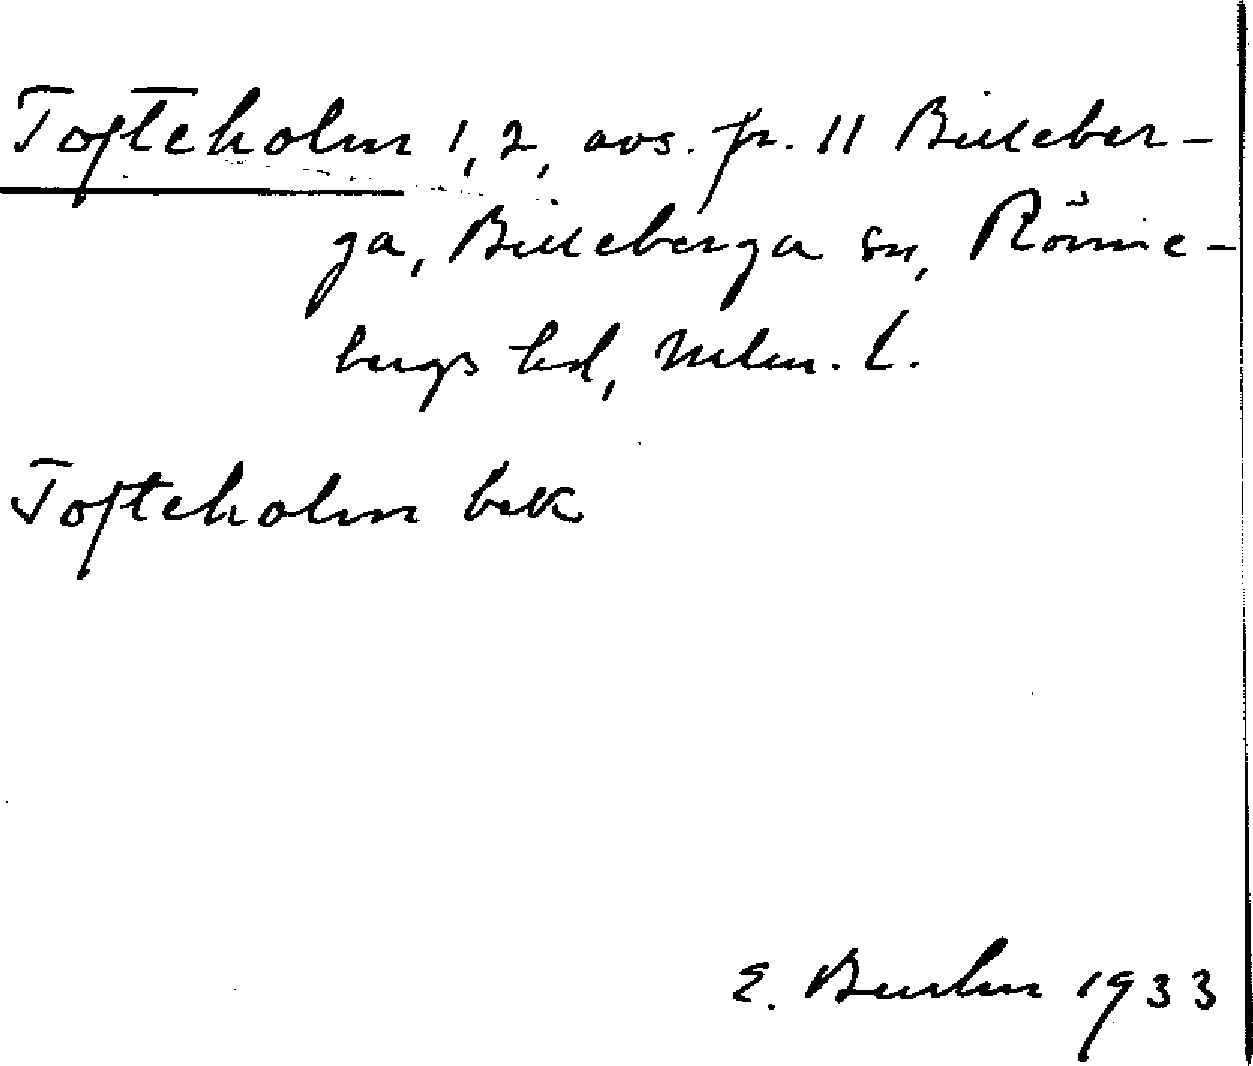 Tofteholm 1, 2, avs. fr. 11 Billeber-
ga, Billeberga sn, Rönne-
bergs hd, Malm. l.
Tofteholm bsk
E. 1933